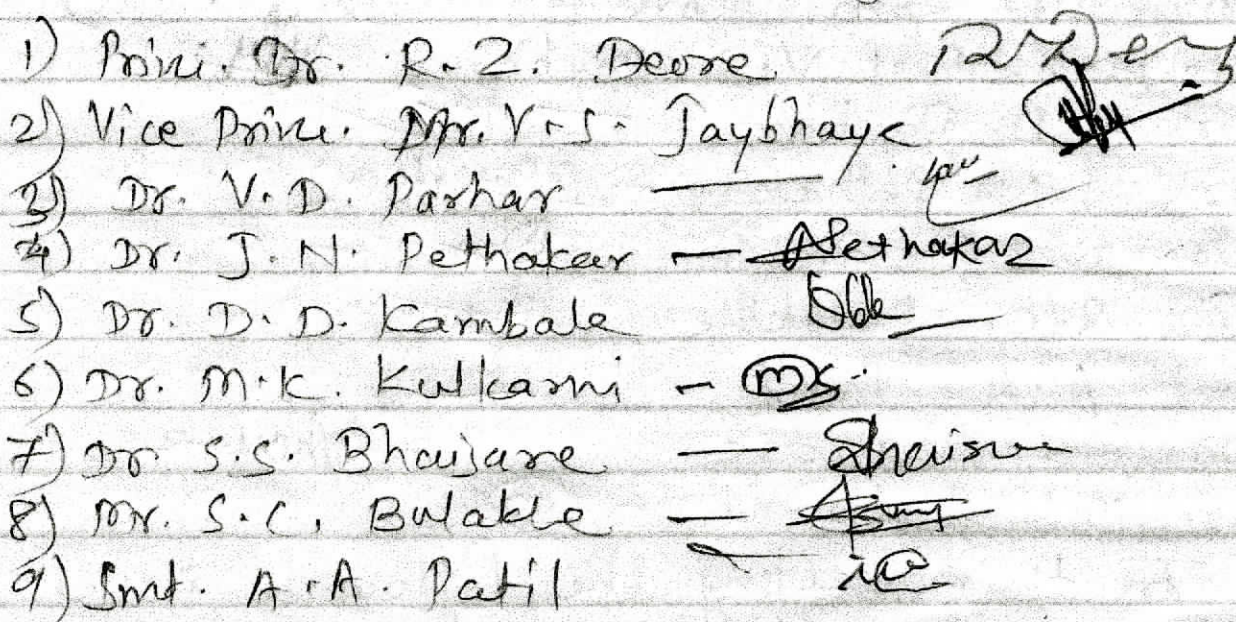 1) Prini. Dr. R. Z. Deore
2) Vice Princ. Mr. V. S. Jaybhaye
3) Dr. V. D. Parhar
4) Dr. J. N. Pethakar — Pethakar
5) Dr. D. D. Kambale
6) Dr. M. K. Kulkarni -
7) Dr. S. S. Bhaisare —
8) Mr. S. C. Bulakhe —
9) Smt. A. A. Patil